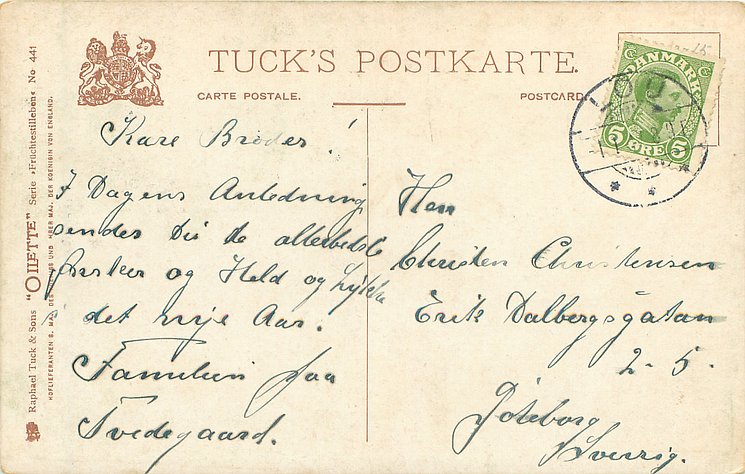 TUCK'S POSTKARTE.
CARTE POSTALE.
POSTCARD.
Raphael Tuck & Sons "OILETTE" Serie »Früchtestilleben« No 441
HOFLIEFERANTEN S. MAJ. DES KÖNIGS UND IHRER MAJ. DER KOENIGIN VON ENGLAND.
DANMARK
5 ØRE 5
Kare Broder!
I Dagens Anledning
sendes Dii de allerbedste
Ønsker og Held og Lykke
det nye Aar.
Familien paa
Tvedegaard.
Herr
Christen Christensen
Erik Dalbergsgatan
2-5.
Göteborg
Sverrig.